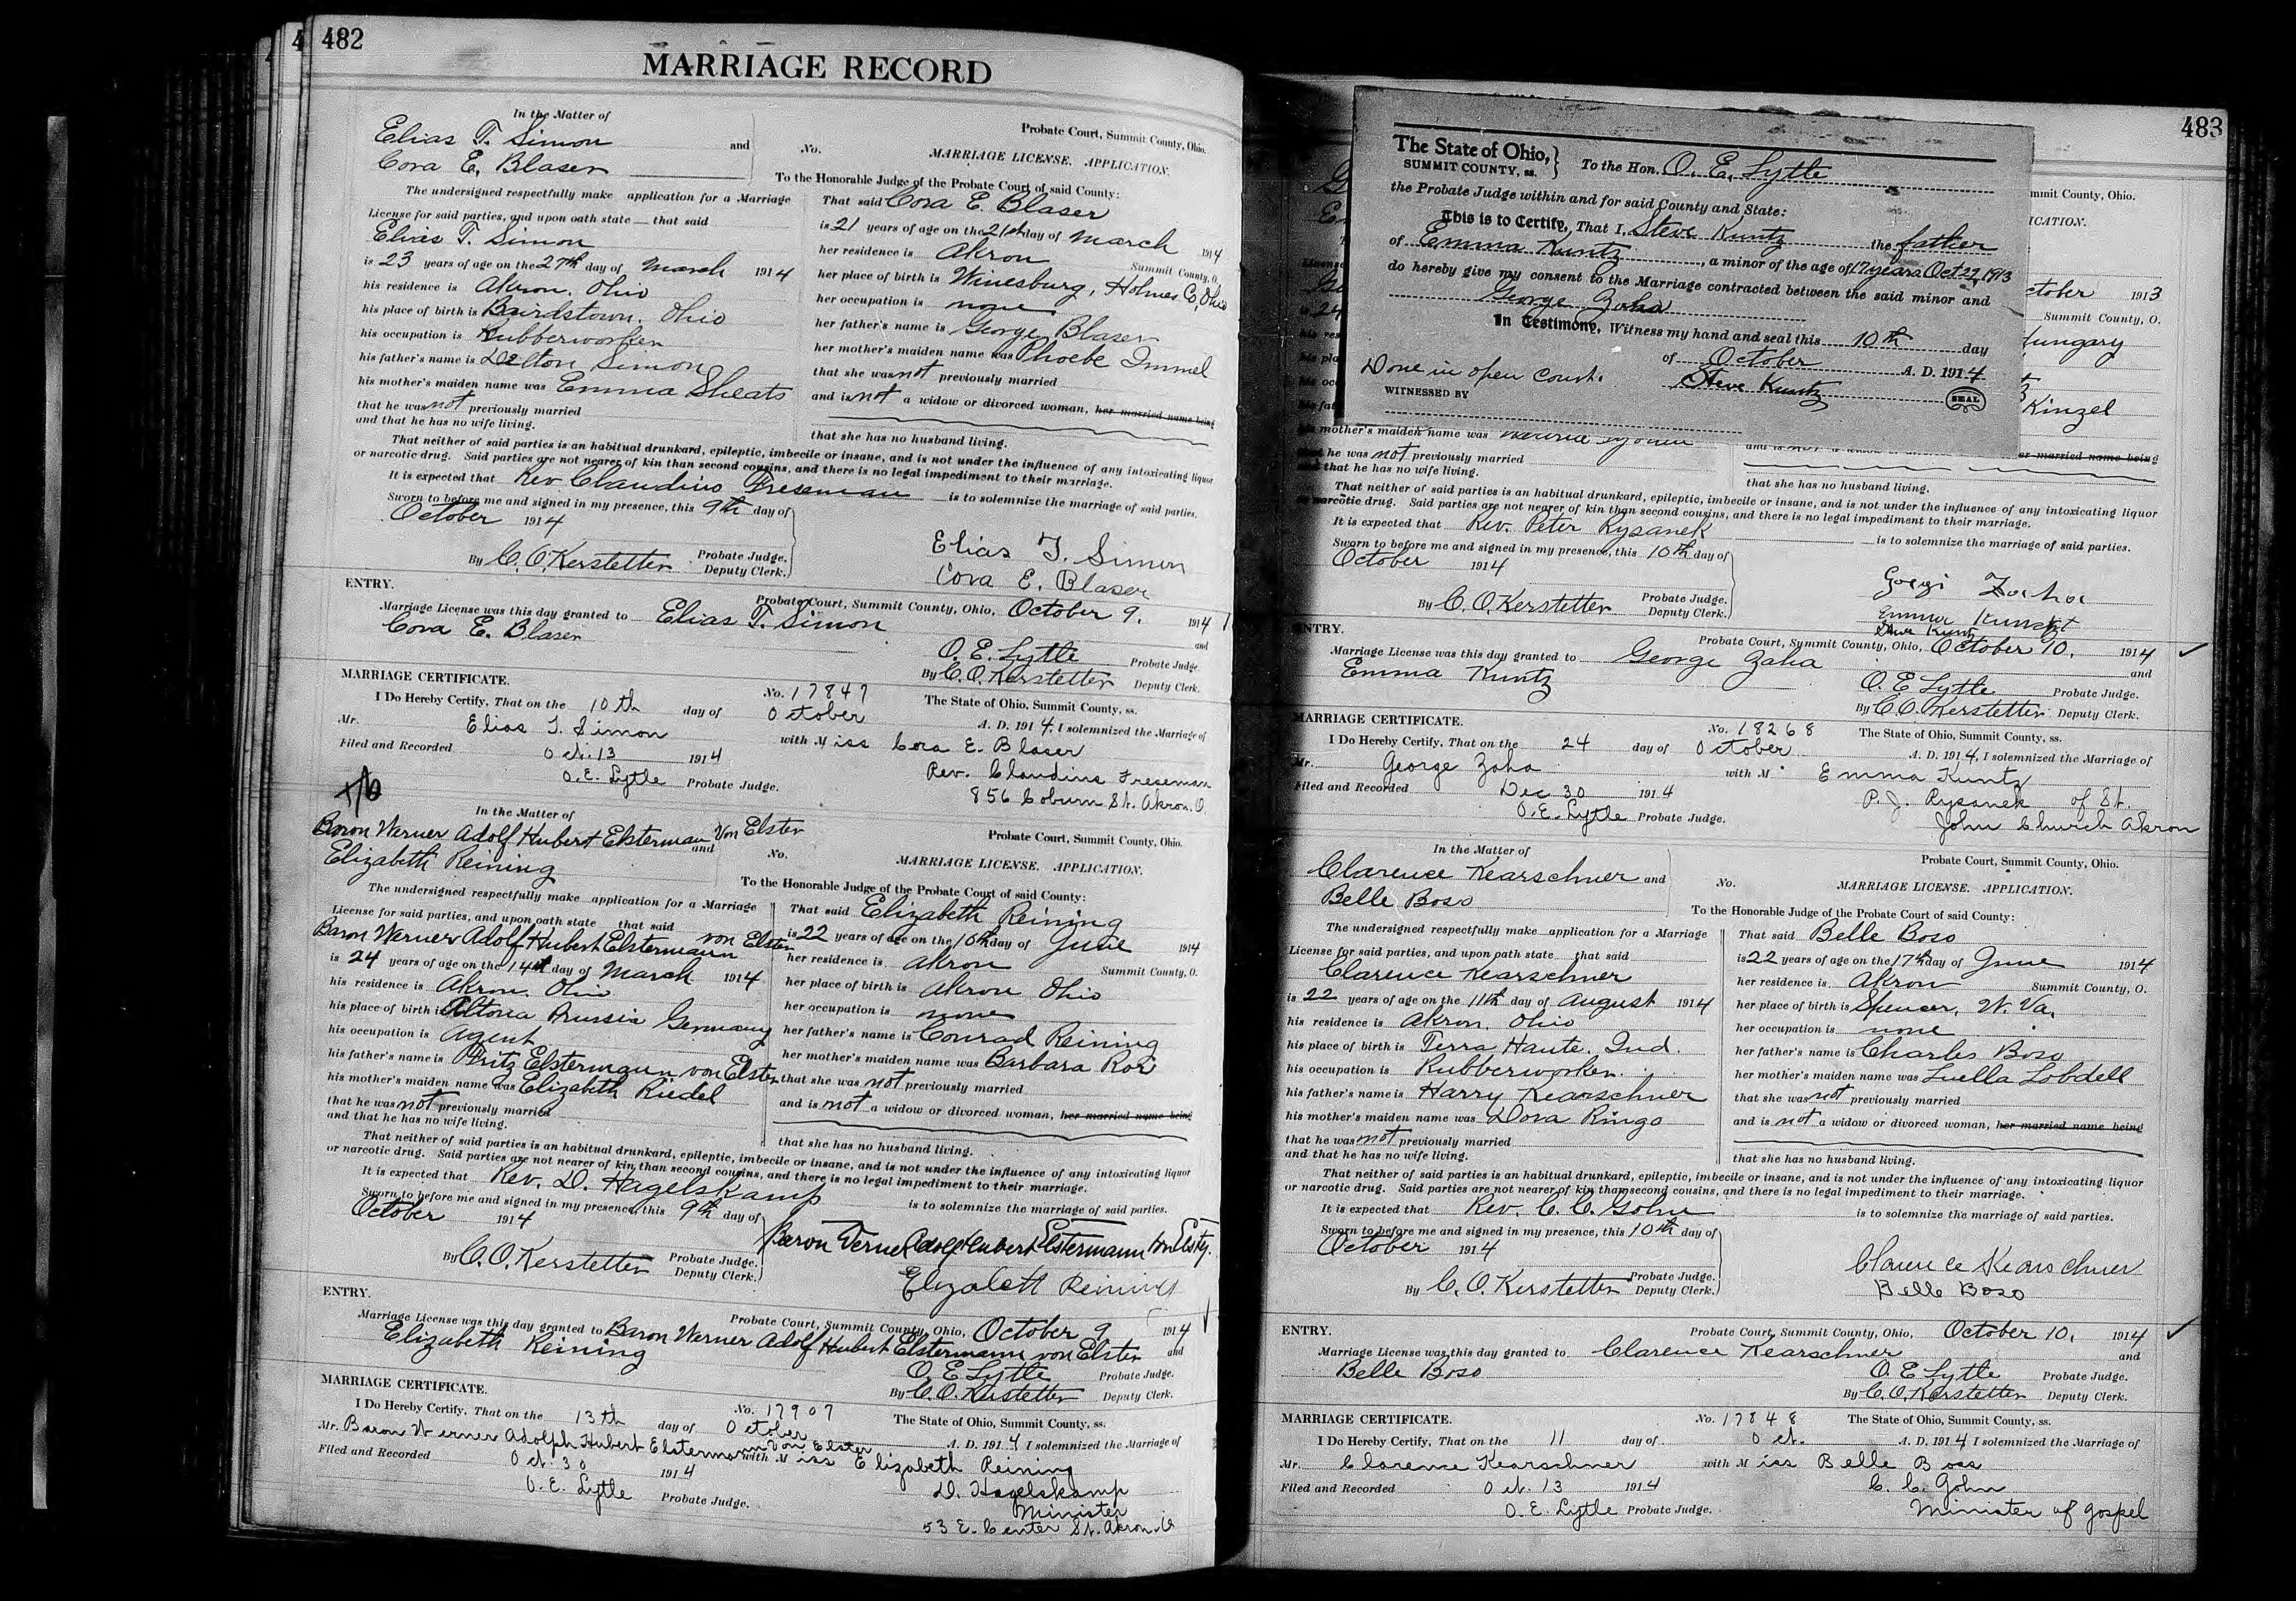 482
MARRIAGE RECORD
In the Matter of
Elias T. Simon and
Cora E. Blaser
Probate Court, Summit County, Ohio.
No. MARRIAGE LICENSE. APPLICATION.
To the Honorable Judge of the Probate Court of said County:
The undersigned respectfully make application for a Marriage
License for said parties, and upon oath state that said
Elias T. Simon
is 23 years of age on the 27th day of March 1914
his residence is Akron. Ohio
his place of birth is Bairdstown. Ohio
his occupation is Rubberworker
his father's name is Delton Simon
his mother's maiden name was Emma Sheats
that he was not previously married
and that he has no wife living.
That said Cora E. Blaser
is 21 years of age on the 21st day of March 1914
her residence is Akron Summit County, O.
her place of birth is Winesburg, Holmes Co, Ohio
her occupation is none
her father's name is George Blaser
her mother's maiden name was Phoebe Immel
that she was not previously married
and is not a widow or divorced woman, her married name being
that she has no husband living.
That neither of said parties is an habitual drunkard, epileptic, imbecile or insane, and is not under the influence of any intoxicating liquor
or narcotic drug. Said parties are not nearer of kin than second cousins, and there is no legal impediment to their marriage.
It is expected that Rev Claudius Freseman is to solemnize the marriage of said parties.
Sworn to before me and signed in my presence, this 9th day of
October 1914
Probate Judge.
By C. O. Kerstetter Deputy Clerk.
Elias T. Simon
Cora E. Blaser
ENTRY.
Probate Court, Summit County, Ohio, October 9. 1914
Marriage License was this day granted to Elias T. Simon and
Cora E. Blaser
O. E. Lytle Probate Judge.
By C. O. Kerstetter Deputy Clerk.
MARRIAGE CERTIFICATE.
No. 17847 The State of Ohio, Summit County, ss.
I Do Hereby Certify, That on the 10th day of October A. D. 1914, I solemnized the Marriage of
Mr. Elias T. Simon with Miss Cora E. Blaser
Filed and Recorded Oct. 13 1914
O. E. Lytle Probate Judge.
Rev. Claudius Freseman
856 Coburn St. Akron. O.
In the Matter of
Baron Werner Adolf Hubert Elsterman Von Elster
and
Elizabeth Reining
Probate Court, Summit County, Ohio.
No. MARRIAGE LICENSE. APPLICATION.
To the Honorable Judge of the Probate Court of said County:
The undersigned respectfully make application for a Marriage
License for said parties, and upon oath state that said
Baron Werner Adolf Hubert Elstermann von Elster
is 24 years of age on the 14th day of March 1914
his residence is Akron. Ohio
his place of birth is Altona Prussia Germany
his occupation is agent
his father's name is Fritz Elstermann von Elster
his mother's maiden name was Elizabeth Riedel
that he was not previously married
and that he has no wife living.
That said Elizabeth Reining
is 22 years of age on the 10th day of June 1914
her residence is Akron Summit County, O.
her place of birth is Akron Ohio
her occupation is none
her father's name is Conrad Reining
her mother's maiden name was Barbara Roi
that she was not previously married
and is not a widow or divorced woman, her married name being
that she has no husband living.
That neither of said parties is an habitual drunkard, epileptic, imbecile or insane, and is not under the influence of any intoxicating liquor
or narcotic drug. Said parties are not nearer of kin than second cousins, and there is no legal impediment to their marriage.
It is expected that Rev. D. Hagelskamp is to solemnize the marriage of said parties.
Sworn to before me and signed in my presence, this 9th day of
October 1914
Probate Judge.
By C. O. Kerstetter Deputy Clerk.
Baron Verner Adolf Hubert Elstermann von Elster.
Elizabeth Reining
ENTRY.
Probate Court, Summit County, Ohio, October 9 1914
Marriage License was this day granted to Baron Werner Adolf Hubert Elstermann von Elster and
Elizabeth Reining
O. E Lytle Probate Judge.
By C. O. Kerstetter Deputy Clerk.
MARRIAGE CERTIFICATE.
No. 17907 The State of Ohio, Summit County, ss.
I Do Hereby Certify, That on the 13th day of October A. D. 1914 I solemnized the Marriage of
Mr. Baron Werner Adolph Hubert Elstermann Von Elster with Miss Elizabeth Reining
Filed and Recorded Oct. 30 1914
O. E. Lytle Probate Judge.
D. Hagelskamp
Minister
53 E. Center St. Akron. O
483
The State of Ohio,
SUMMIT COUNTY, ss.
To the Hon. O. E. Lytle
the Probate Judge within and for said County and State:
This is to Certify, That I, Steve Kuntz the father
of Emma Kuntz, a minor of the age of 17 years Oct 27, 1913
do hereby give my consent to the Marriage contracted between the said minor and
George Zoha
In Testimony, Witness my hand and seal this 10th day
of October A. D. 1914
Done in open Court. Steve Kuntz SEAL
WITNESSED BY
mmit County, Ohio.
ICATION.
ctober 1913
Summit County, O.
Hungary
Kinzel
mother's maiden name was
he was not previously married
that he has no wife living.
er married name being
that she has no husband living.
That neither of said parties is an habitual drunkard, epileptic, imbecile or insane, and is not under the influence of any intoxicating liquor
or narcotic drug. Said parties are not nearer of kin than second cousins, and there is no legal impediment to their marriage.
It is expected that Rev. Peter Rysanek is to solemnize the marriage of said parties.
Sworn to before me and signed in my presence, this 10th day of
October 1914
Probate Judge.
By C. O. Kerstetter Deputy Clerk.
Zoha
Emma
Steve Kuntz
ENTRY.
Probate Court, Summit County, Ohio, October 10. 1914
Marriage License was this day granted to George Zaha and
Emma Kuntz
O. E Lytle Probate Judge.
By C. O. Kerstetter Deputy Clerk.
MARRIAGE CERTIFICATE.
No. 18268 The State of Ohio, Summit County, ss.
I Do Hereby Certify, That on the 24 day of October A. D. 1914, I solemnized the Marriage of
Mr. George Zoha with M Emma Kuntz
Filed and Recorded Dec 30 1914
O. E. Lytle Probate Judge.
P. J. Rysanek of St.
John Church Akron
In the Matter of
Clarence Kearschner and
Belle Boso
Probate Court, Summit County, Ohio.
No. MARRIAGE LICENSE. APPLICATION.
To the Honorable Judge of the Probate Court of said County:
The undersigned respectfully make application for a Marriage
License for said parties, and upon oath state that said
Clarence Kearschner
is 22 years of age on the 11th day of August 1914
his residence is Akron. Ohio
his place of birth is Terra Haute. Ind.
his occupation is Rubberworker.
his father's name is Harry Kearschner
his mother's maiden name was Dora Ringo
that he was not previously married
and that he has no wife living.
That said Belle Boso
is 22 years of age on the 17th day of June 1914
her residence is Akron Summit County, O.
her place of birth is Spencer, W. Va.
her occupation is none
her father's name is Charles Boso
her mother's maiden name was Luella Lobdell
that she was not previously married
and is not a widow or divorced woman, her married name being
that she has no husband living.
That neither of said parties is an habitual drunkard, epileptic, imbecile or insane, and is not under the influence of any intoxicating liquor
or narcotic drug. Said parties are not nearer of kin than second cousins, and there is no legal impediment to their marriage.
It is expected that Rev. C. C. Gohn is to solemnize the marriage of said parties.
Sworn to before me and signed in my presence, this 10th day of
October 1914
Probate Judge.
By C. O. Kerstetter Deputy Clerk.
Clarence Kearschner
Belle Boso
ENTRY.
Probate Court, Summit County, Ohio, October 10. 1914
Marriage License was this day granted to Clarence Kearschner and
Belle Boso
O. E Lytle Probate Judge.
By C. O. Kerstetter Deputy Clerk.
MARRIAGE CERTIFICATE.
No. 17848 The State of Ohio, Summit County, ss.
I Do Hereby Certify, That on the 11 day of Oct. A. D. 1914 I solemnized the Marriage of
Mr. Clarence Kearschner with Miss Belle Boss
Filed and Recorded Oct. 13 1914
O. E. Lytle Probate Judge.
C. C. Gohn
Minister of gospel